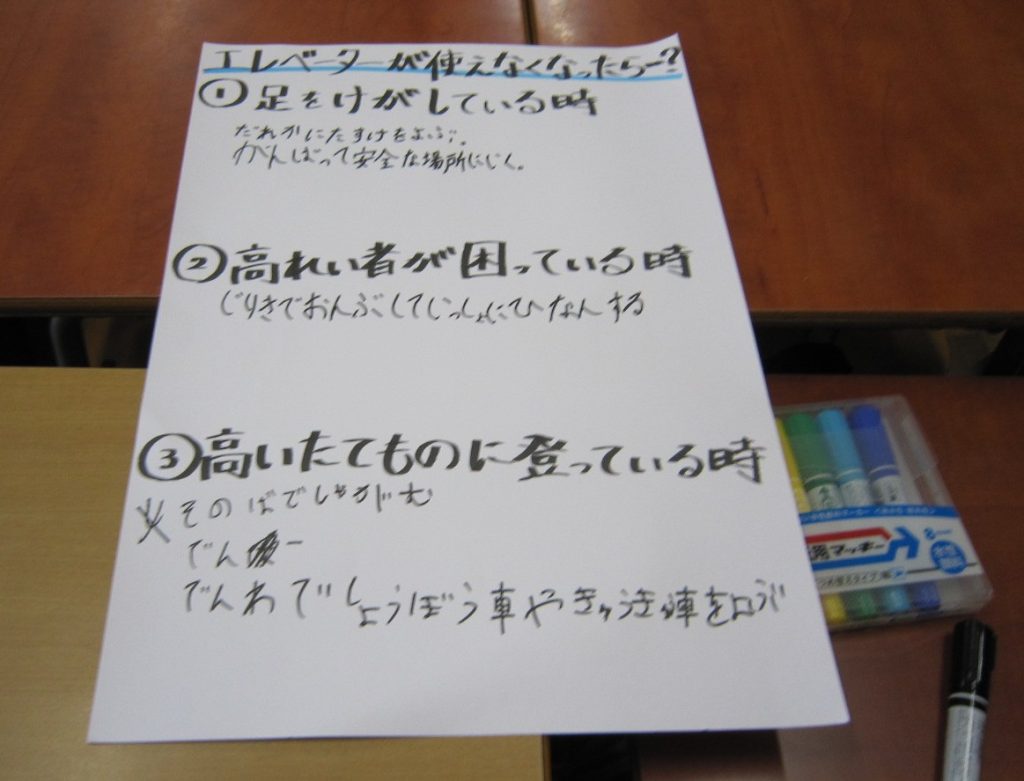 エレベーターが使えなくなったらー?
①足をけがしている時
だれかにたすけをよぶ。
がんばって安全な場所にいく。
②高れい者が困っている時
じりきでおんぶしていっしょにひなんする
③高いたてものに登っている時
そのばでしゃがむ
でん
でんわでしょうぼう車やきゅうきゅう車をよぶ
マッキー